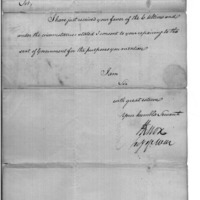 Sir,
I have just received your favor of the 6 ultimo and
under the circumstances stated I consent to your repairing to the
seat of Government for the purposes you mention
I am
Sir
with great esteem
Your humble Servant
HKnox